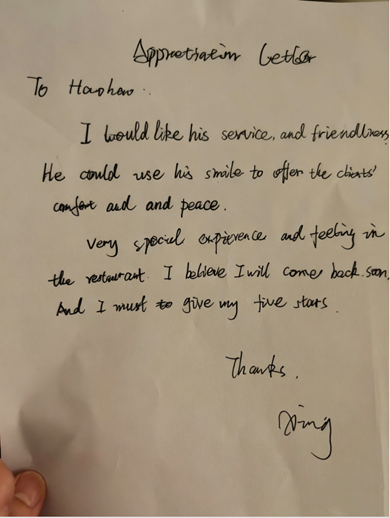 Appretiation Letter
To Haohao.
I would like his service, and friendliness
He could use his smile to offer the clients'
comfort and and peace.
Very special expierence and feeling in
the restaurant. I believe I will come back soon,
And I must to give my five stars.
Thanks.